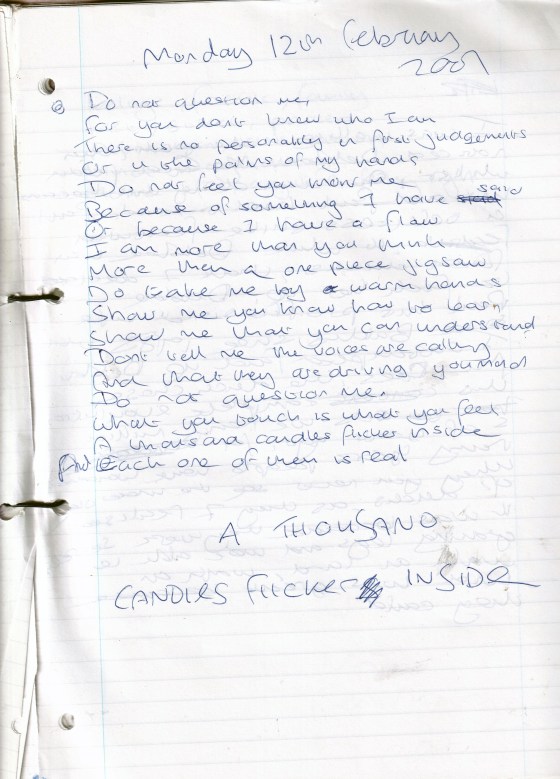 Monday 12th February
2001
Do not question me,
For you dont know who I am
There is no personality in first judgements
Or in the palms of my hands
Do not feel you know me
Because of something I have said
Or because I have a flaw
I am more than you think
More than a one piece jigsaw
Do take me by warm hands
Show me you know how to learn
Show me that you can understand
Dont tell me the voices are calling
And that they are driving you mad
Do not question me.
What you touch is what you feel
A thousand candles flicker inside
And Each one of them is real
A THOUSAND
CANDLES FLICKER INSIDE